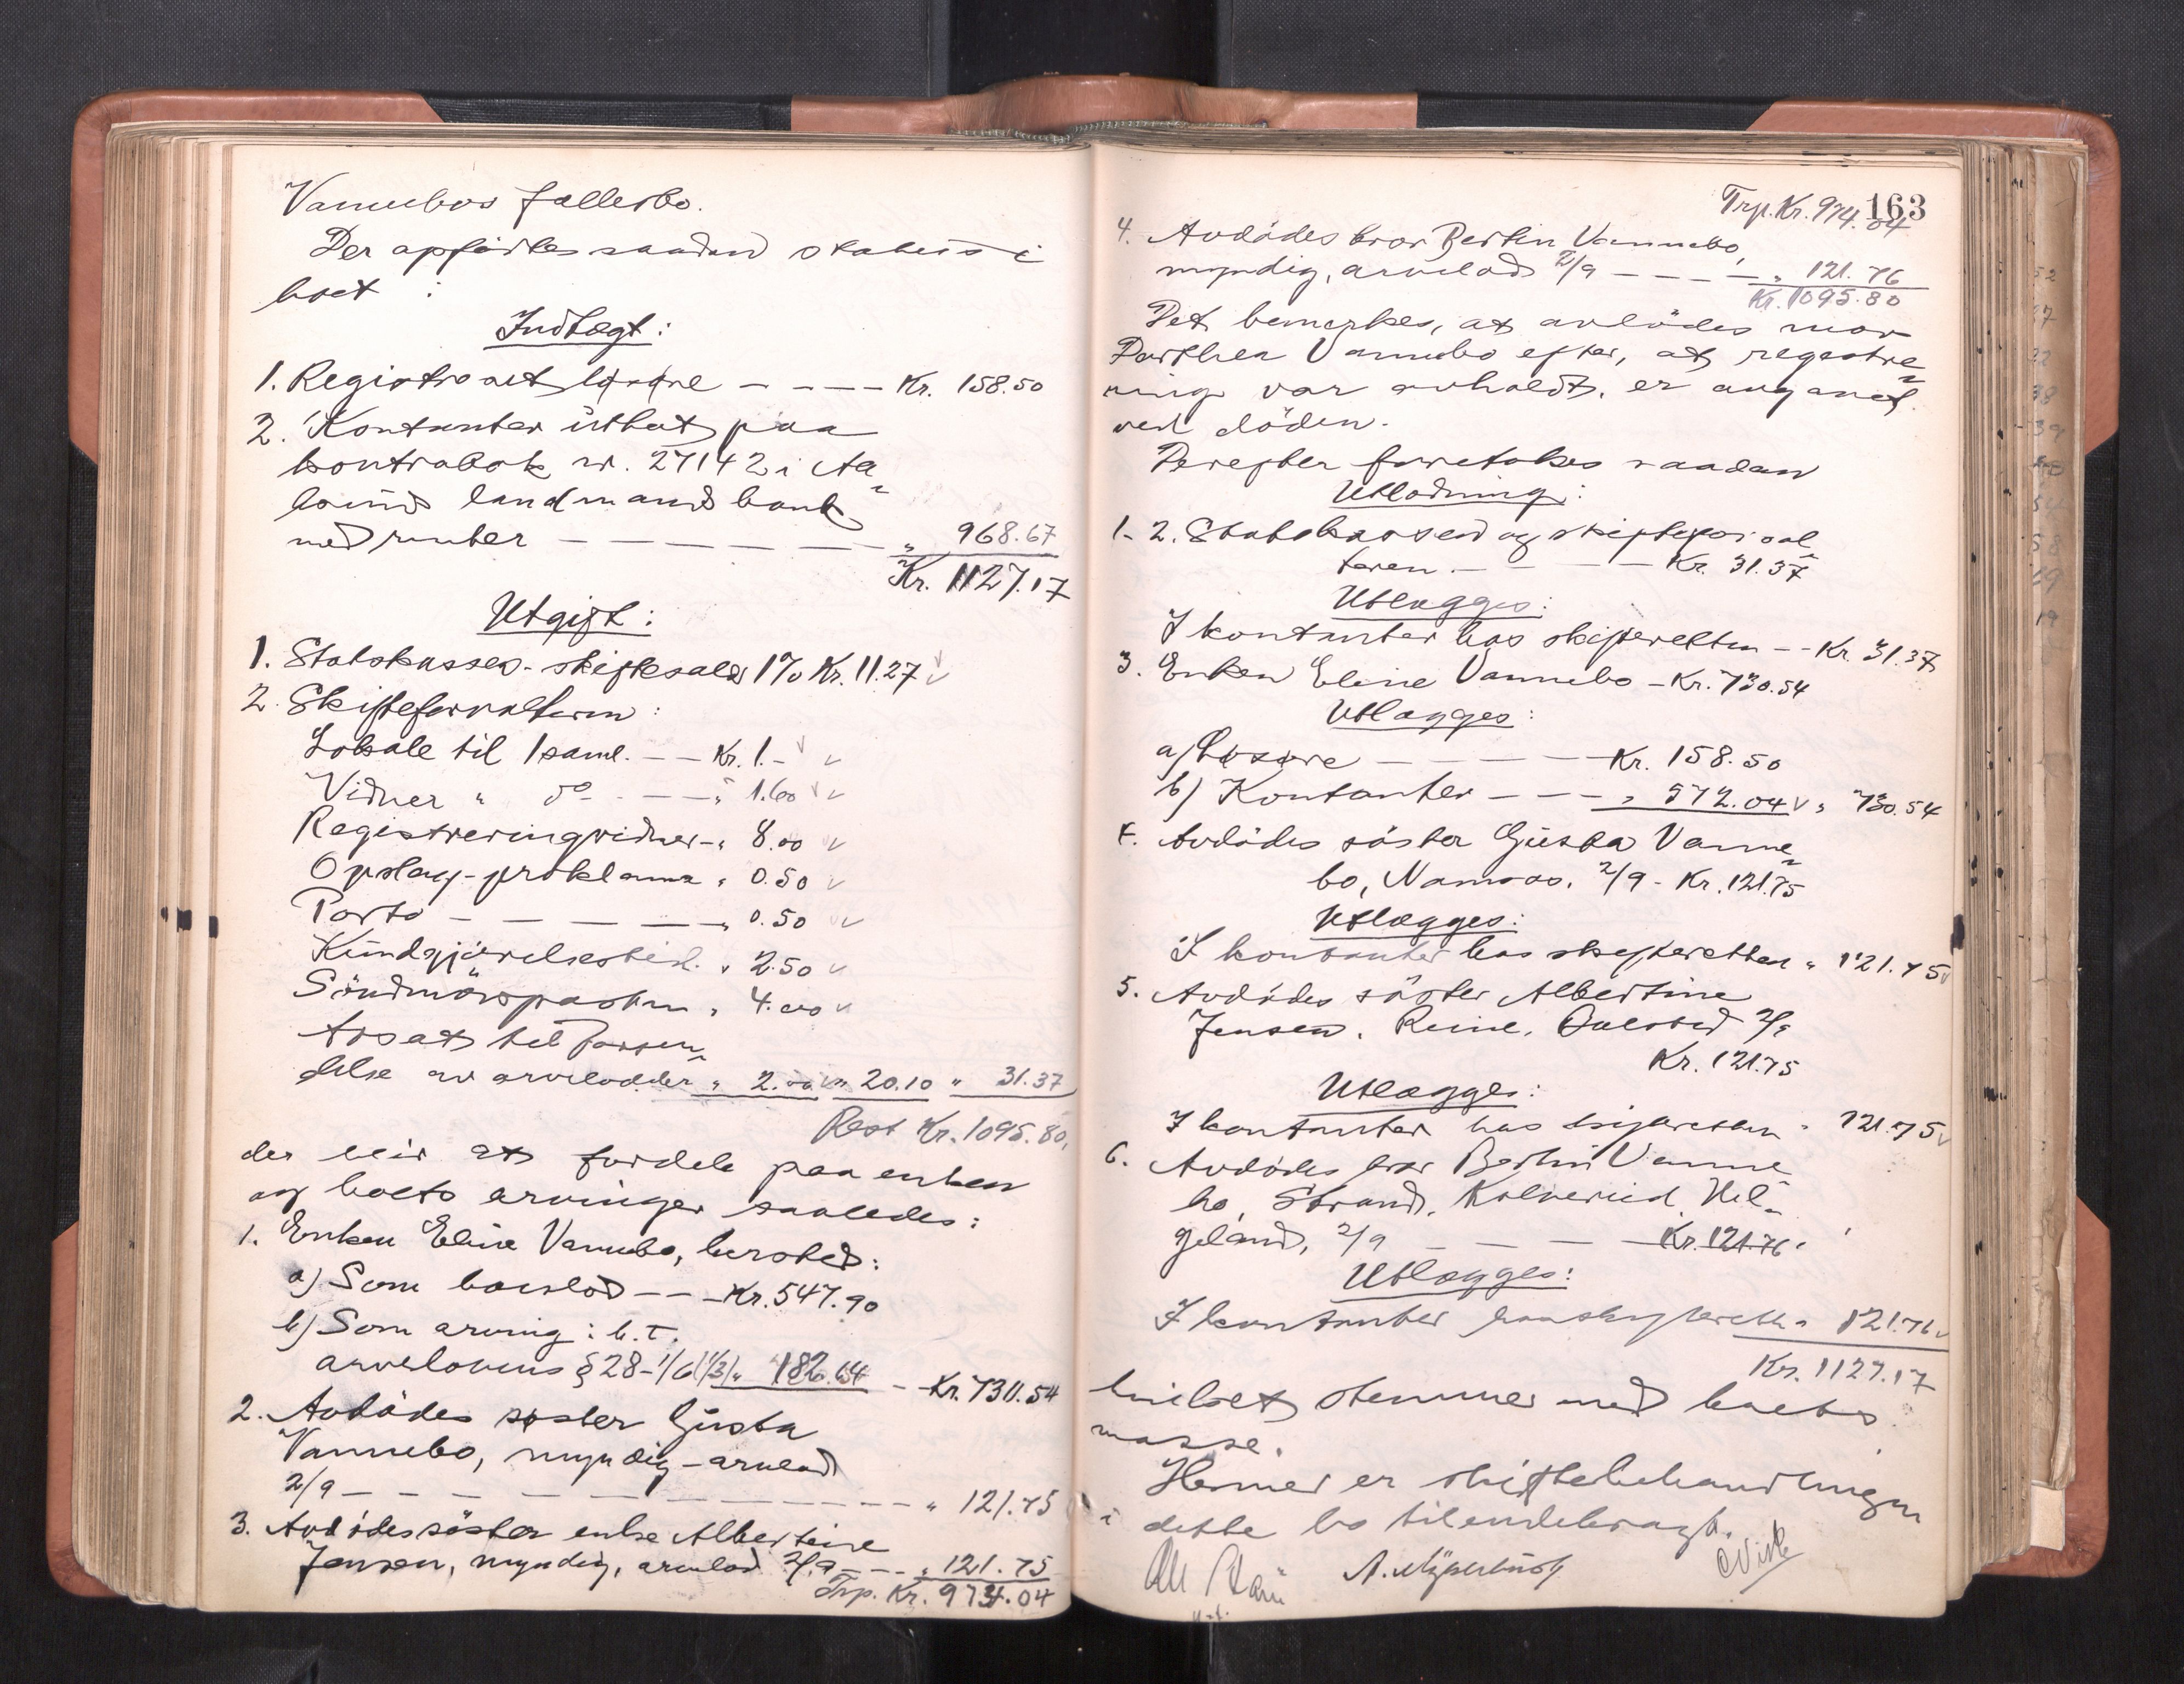 Vannebos fællesbo.
Der opførtes saadan status i
boet :
Indtægt :
1. Registreret løsøre - - - - Kr. 158.50
2. Kontanter ūthat paa
kontrabok nr. 27142 i Aa-
lesūnds landmandsbank
med renter - - - - - - - " 968.67
Kr. 1127.17
Utgift :
1. Statskassen - skiftesaler 1% Kr. 11.27
2. Skifteforvalteren :
Lokale til 1 saml. - - Kr. 1.-
Vidner " do - - - " 1.60
Registreringsvidner - " 8.00
Opslag - proklama " 0.50
Porto - - - - - - " 0.50
Kundgjørelsestid. " 2.50
Söndmörsposten " 4.00
Avsat til forsen-
delse av arvelodder " 2.00 " 20.10 " 31.37
Rest Kr. 1095.80,
der blir at fordele paa enken
og boets arvinger saaledes :
1. Enken Eline Vannebo, hersted :
a) Som boeslod - - - Kr. 547.90
b) Som arving : h.t.
arvelovens § 28 - 1/6 (1/3) " 182.64 - Kr. 730.54
2. Avdødes søster Gūsta
Vannebo, myndig - arvelod
2/9 - - - - - - - - - - " 121.75
3. Avdødes söster enke Albertine
Jensen, myndig, arvelod 2/9 - - " 121.75
Trp. Kr. 974.04
Trp. Kr. 974.04
163
4. Avdödes bror Bertin Vannebo,
myndig, arvelod 2/9 - - - - " 121.76
Kr. 1095.80
Det bemerkes, at avdödes mor
Dorthea Vannebo efter, at registre-
ring var avholdt, er avgaaet
ved döden.
Derefter foretokes saadan
Utlodning :
1-2. Statskassen og skifteforval-
teren - - - - Kr. 31.37
Utlægges :
I kontanter hos skifteretten - - Kr. 31.37
3. Enken Eline Vannebo - Kr. 730.54
Utlægges :
a) Løsøre - - - - - Kr. 158.50
b) Kontanter - - - " 572.04 " 730.54
4. Avdödes söster Gūsta Vanne-
bo, Namsos, 2/9 - Kr. 121.75
Utlægges :
I kontanter hos skifteretten " 121.75
5. Avdödes söster Albertine
Jensen, 2/9
Kr. 121.75
Utlægges :
I kontanter hos skifteretten " 121.75
6. Avdödes bror Bertin Vanne-
bo, Strand, Kolvereid, Hel-
geland, 2/9 - - - - Kr. 121.76
Utlægges :
I kontanter hos skifteretten " 121.76
Kr. 1127.17
hvilket stemmer med boets
masse.
Hermed er skiftebehandlingen
i dette bo tilendebragt.